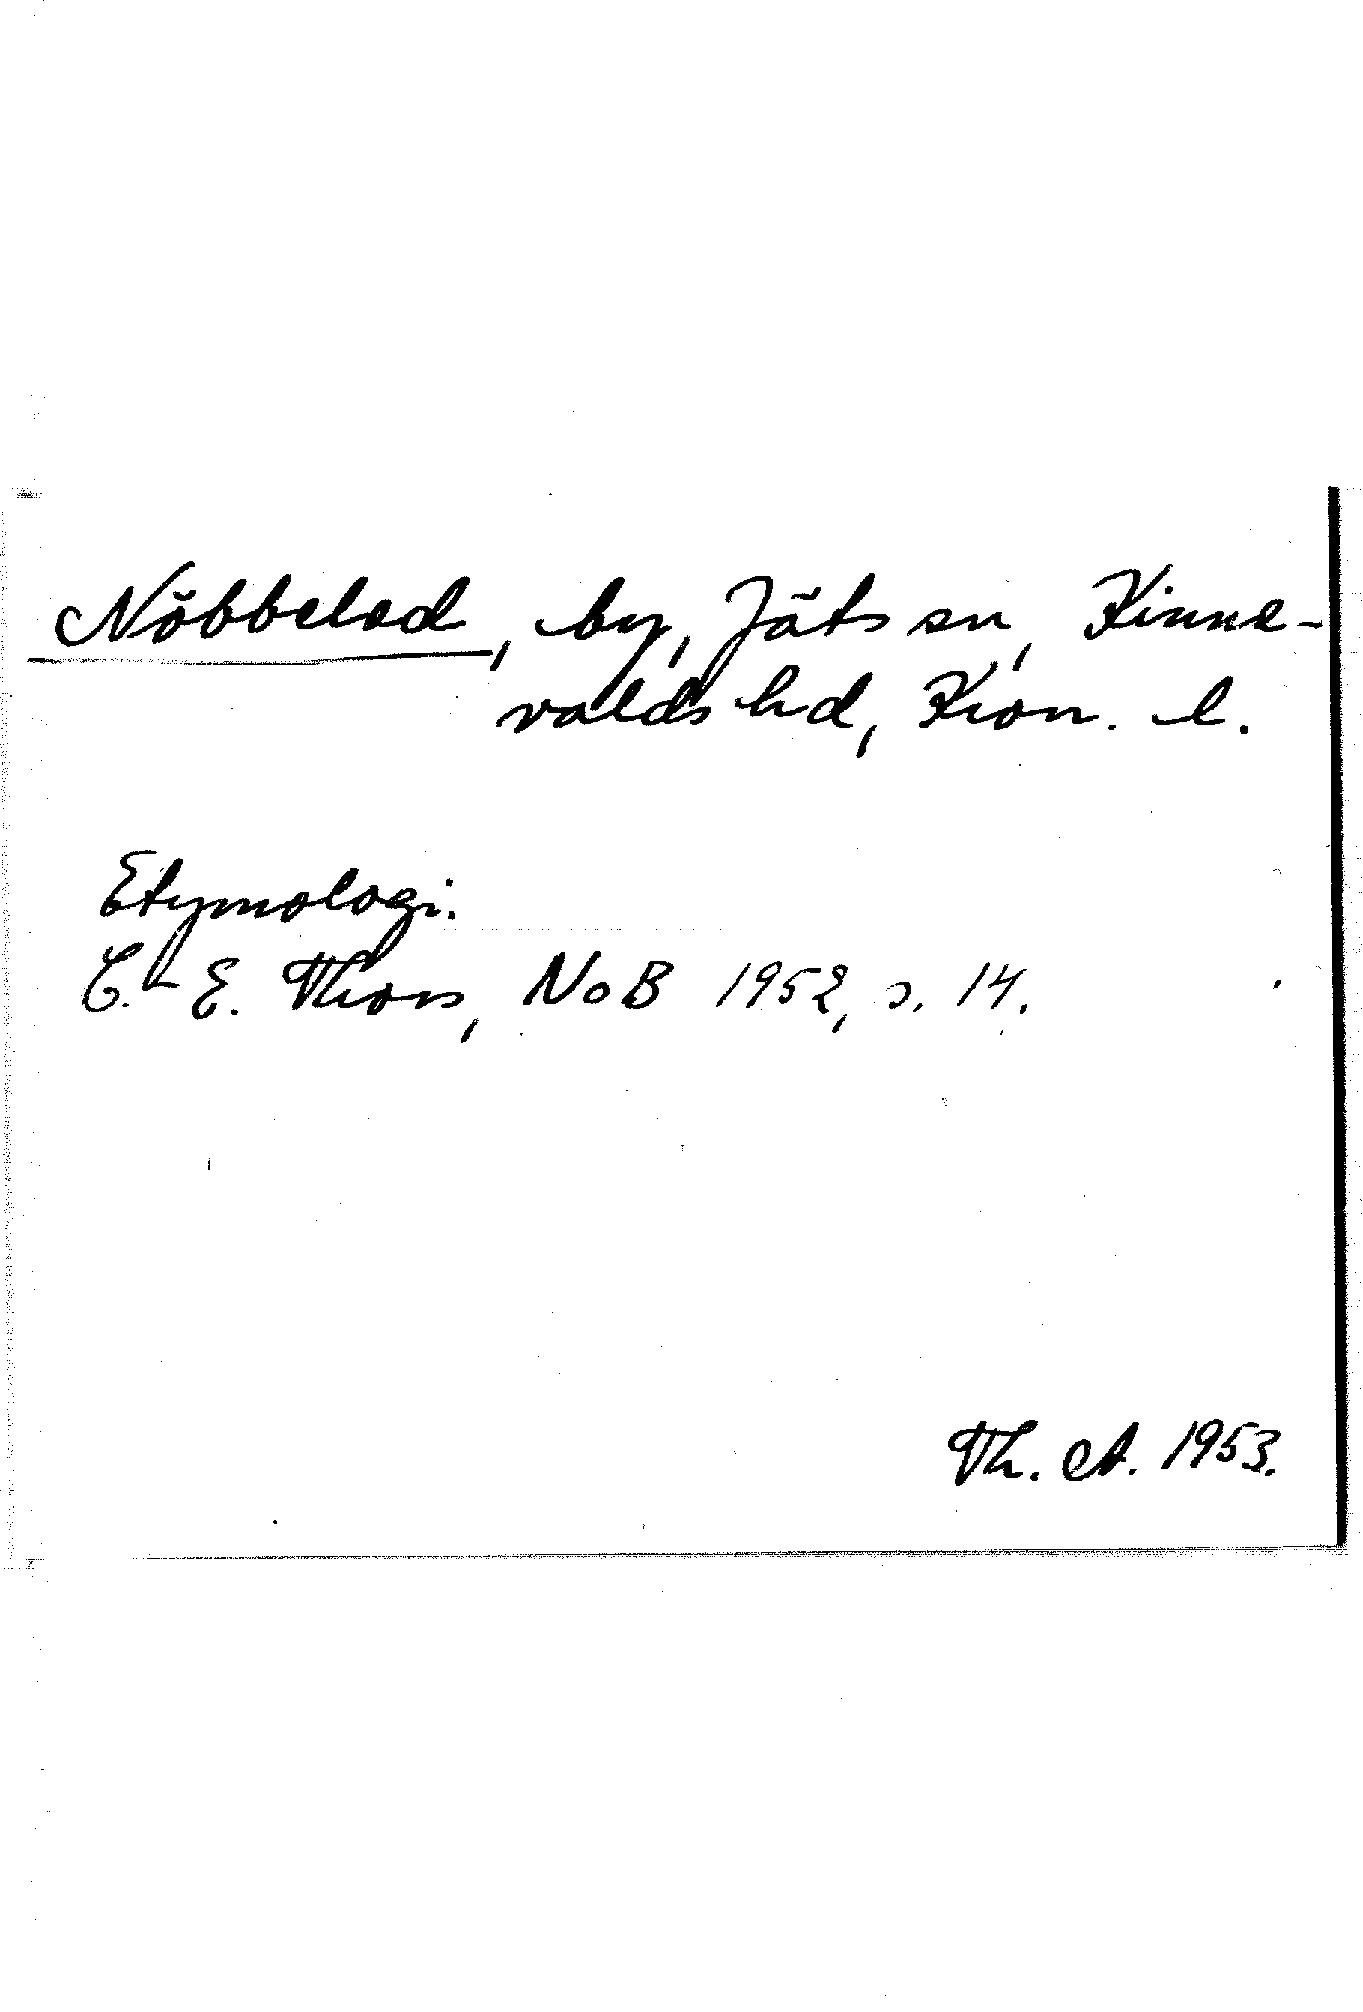 Nöbbeled, by, Jäts sn, Kinne-
valds hd, Kron. l.
Etymologi.
C.-E. Thors, NoB 1952, s. 14.
Th. A. 1953.